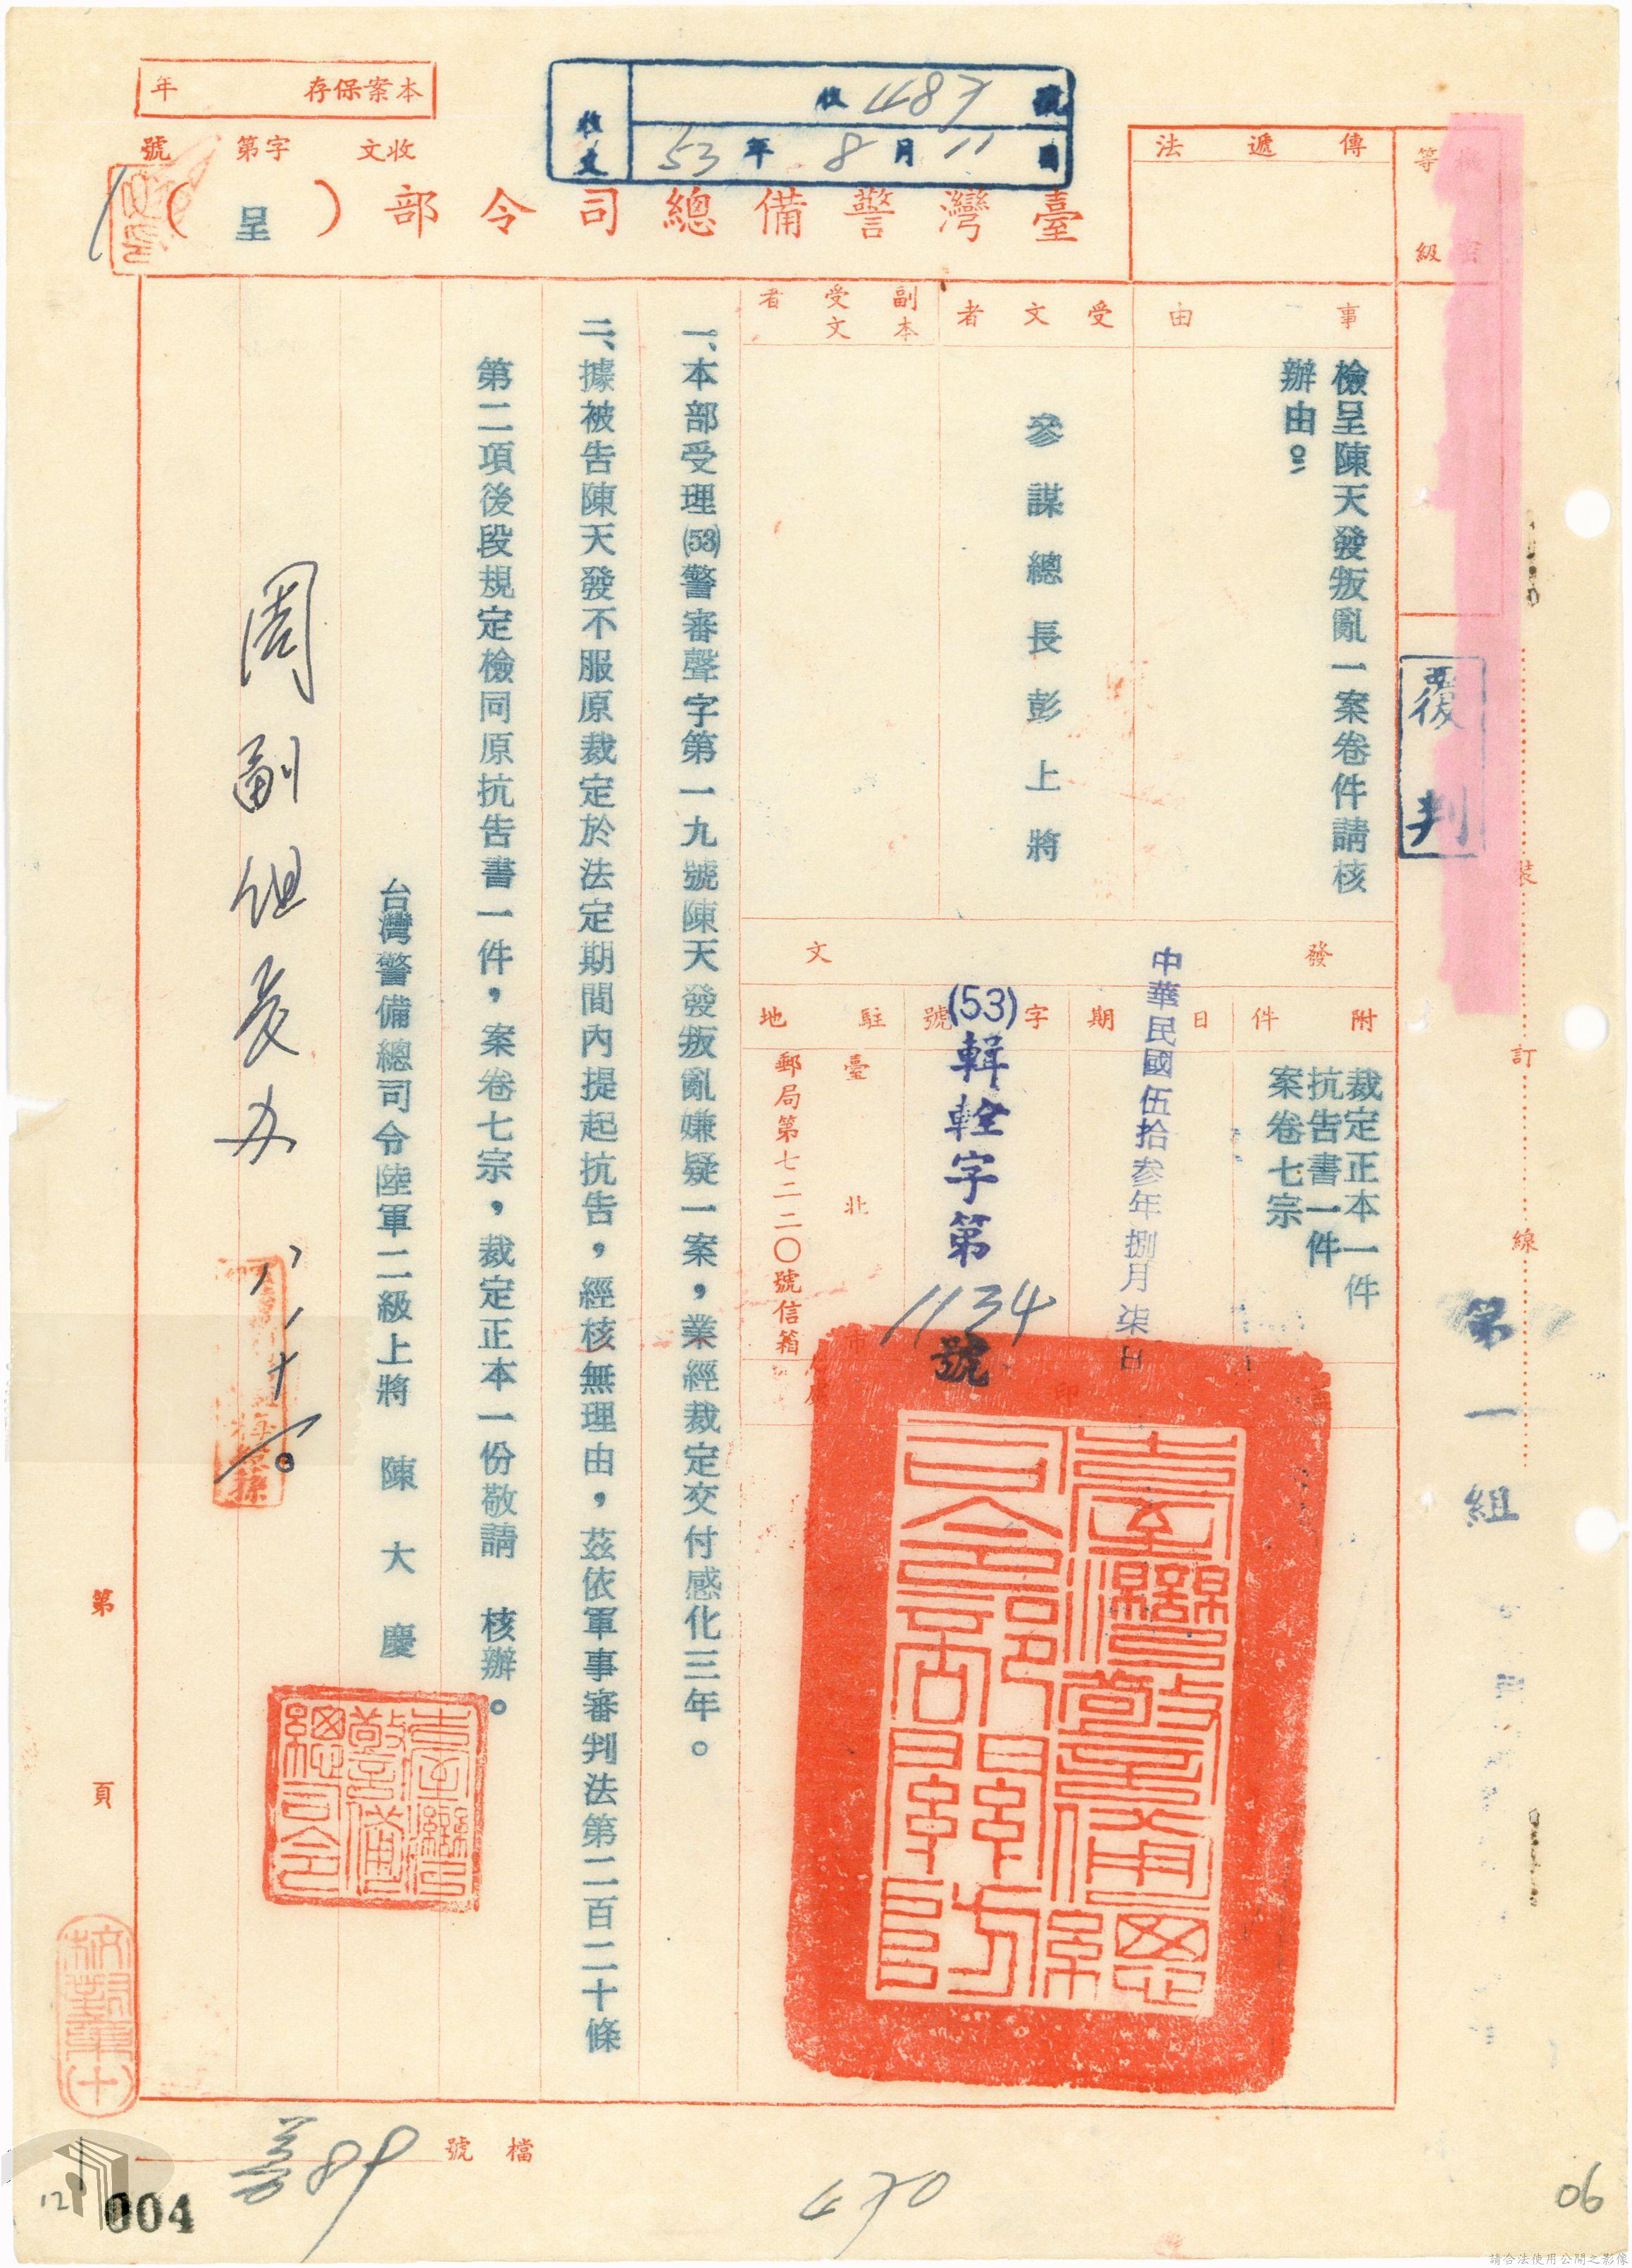 本案保存　年
收文　字第　號
收文
收 487 號
53年8月11日
臺灣警備總司令部（呈）
傳遞法
等級
覆判
事由
檢呈陳天發叛亂一案卷件請核
辦由。
受文者
參謀總長彭上將
副本受文者
發文
附件
裁定正本一件
抗告書一件
案卷七宗
日期
中華民國伍拾參年捌月柒日
字號
(53)輯輇字第1134號
駐地
臺北市
郵局第七二二〇號信箱
印
臺灣警備總司令部關防
一、本部受理(53)警審聲字第一九號陳天發叛亂嫌疑一案，業經裁定交付感化三年。
二、據被告陳天發不服原裁定於法定期間內提起抗告，經核無理由，茲依軍事審判法第二百二十條
第二項後段規定檢同原抗告書一件，案卷七宗，裁定正本一份敬請　核辦。
台灣警備總司令陸軍二級上將　陳大慶
臺灣警備總司令
周副組長办
裝
訂
線
第一組
第　頁
檔號
89
470
06
12
004
請合法使用公開之影像